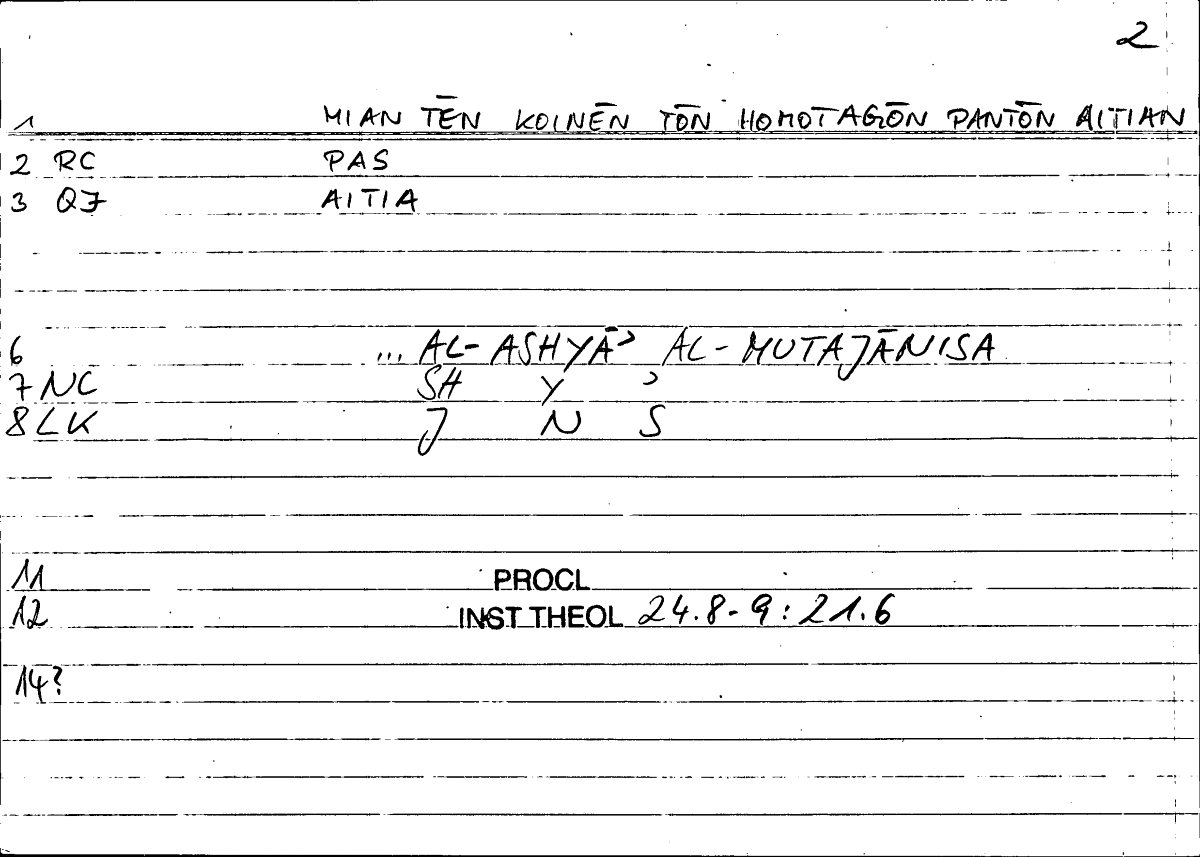 2
1 MIAN TĒN KOINĒN TŌN HOMOTAGŌN PANTŌN AITIAN
2 RC PAS
3 QJ AITIA
6 ... AL-ASHYĀʾ AL-MUTAJĀNISA
7 NC SH Y ʾ
8 LK J N S
11 PROCL
12 INST THEOL 24.8-9: 21.6
14?